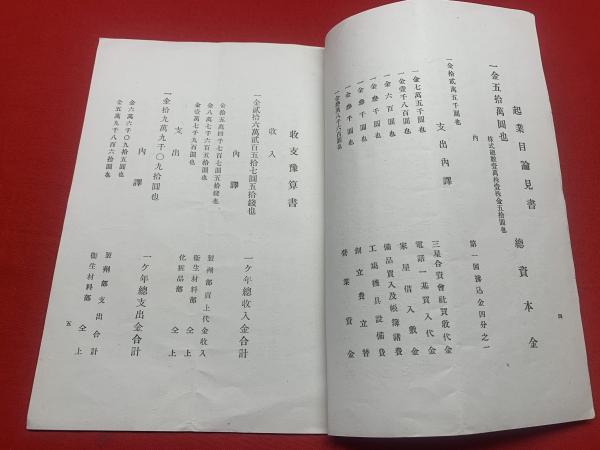 起業目論見書
一金五拾萬圓也 總資本金
株式總數壹萬株壹株金五拾圓也
內
一金拾貳萬五千圓也 第一回拂込金四分之一
支出內譯
一金七萬五千圓也 三星合資會社買收代金
一金壹千八百圓也 電話一基買入代金
一金六百圓也 家屋借入敷金
一金參千圓也 備品買入及帳簿諸費
一金參千圓也 工場機具設備費
一金參千圓也 創立費立替
一金參萬八千六百圓也 營業資金
四
收支豫算書
收入
一金貳拾六萬貳百五拾七圓五拾錢也 一ケ年總收入金合計
內譯
金拾五萬四千七百七圓五拾錢也 製劑部賣上代金收入
金八萬七千六百五拾圓也 衞生材料部 仝上
金壹萬七千九百圓也 化粧品部 仝上
支出
一金拾九萬九千〇九拾圓也 一ケ年總支出金合計
內譯
金六萬六千〇九拾五圓也 製劑部支出合計
金五萬九千八百六拾圓也 衞生材料部 仝上
五